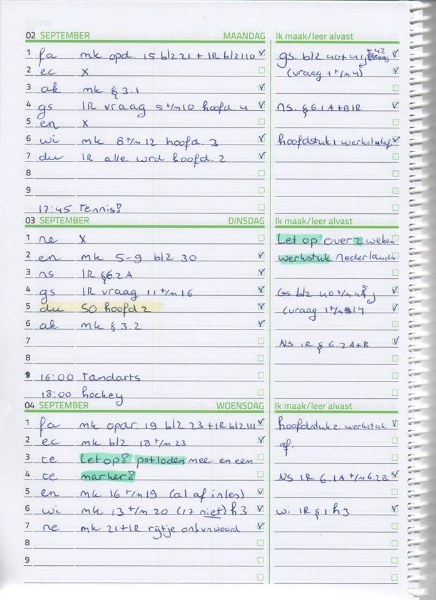 02 SEPTEMBER MAANDAG Ik maak/leer alvast
1 fa mk opd. 15 blz 21 + lR blz 110
gs. blz 40 + 41
2 ec x
(vraag 1 t/m 4)
3 ak mk § 3.1
4 gs lR vraag 5 t/m 10 hoofd. 4
ns. § 6.1 A+B lR
5 en x
6 wi mk 8 t/m 12 hoofd. 3
hoofdstuk 1 werkstuk
7 du lR alle wrd hoofd. 2
8
9
17:45 Tennis!
03 SEPTEMBER DINSDAG Ik maak/leer alvast
1 ne x
Let op over 2 weken
2 en mk 5-9 blz 30
werkstuk nederlands
3 ns lR § 6.2 A
4 gs lR vraag 11 t/m 16
Gs blz 40 t/m
5 du SO hoofd 2
(vraag 1 t/m 14
6 ak mk § 3.2
7
NS lR § 6.2 A+B
8
9 16:00 Tandarts
18:00 hockey
04 SEPTEMBER WOENSDAG Ik maak/leer alvast
1 fa mk opdr 19 blz 23 + lR blz 111
hoofdstuk 2 werkstuk
2 ec mk blz 18 t/m 23
af
3 te Let op! potloden mee en een
4 te marker!
NS lR 6.1A t/m 6.2B
5 en mk 16 t/m 19 (al af inles)
6 wi mk 13 t/m 20 (17 niet) h3
wi lR § 1 h3
7 ne mk 21 + lR rijtje
8
9